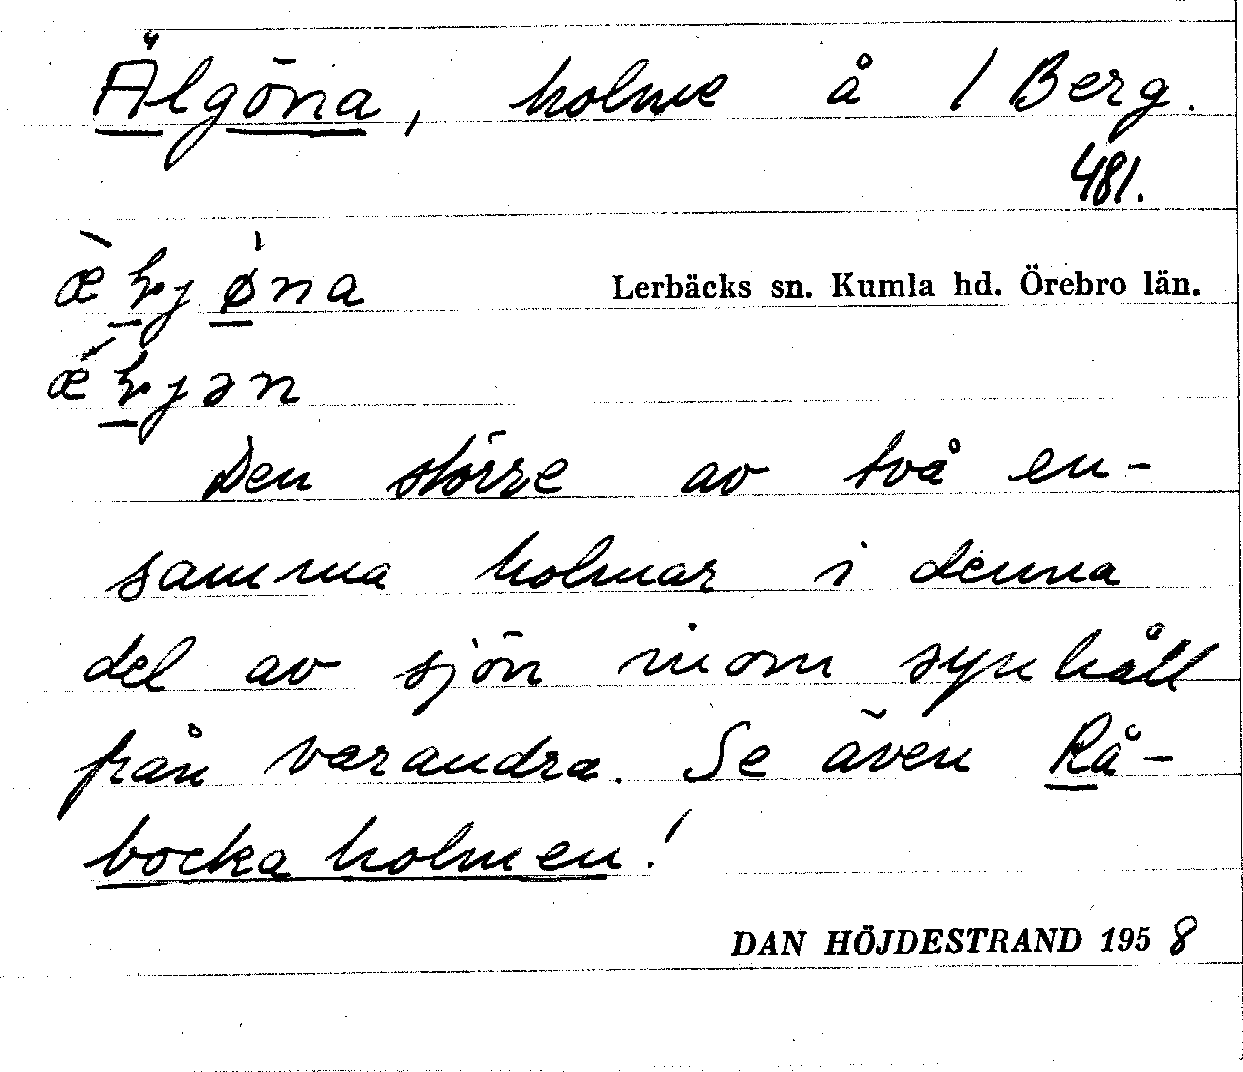 Älgöna, holme å 1 Berg.
481.
Lerbäcks sn. Kumla hd. Örebro län.
Den större av två en-
samma holmar i denna
del av sjön inom synhåll
från varandra. Se även Rå-
bockaholmen!
DAN HÖJDESTRAND 1958